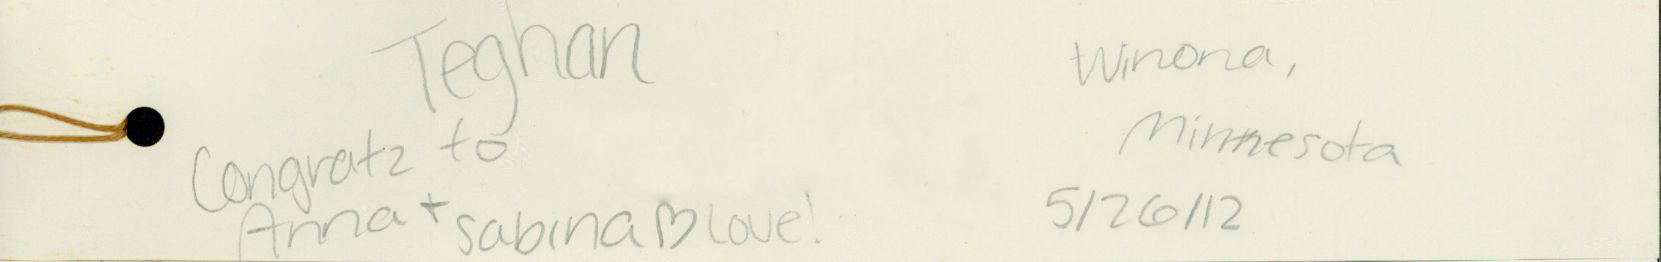 Teghan
Congratz to
Anna + Sabina ♡ love!
Winona,
Minnesota
5/26/12